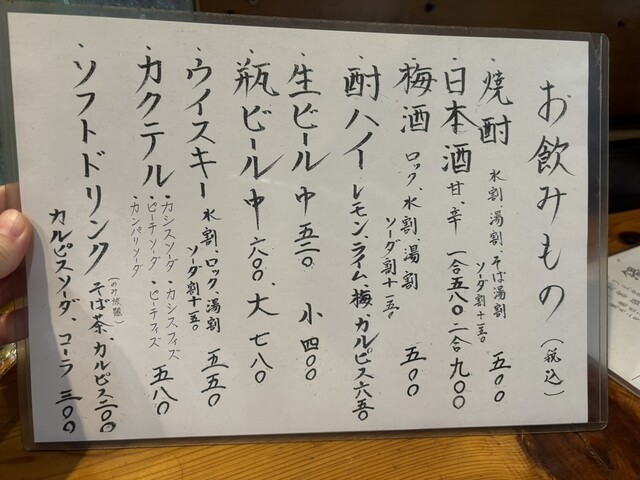 お飲みもの(税込)
・焼酎 水割、湯割、そば湯割 五〇〇
ソーダ割十五〇
・日本酒 甘、辛 一合五八〇 二合九〇〇
・梅酒 ロック、水割、湯割 五〇〇
ソーダ割十五〇
・酎ハイ レモン、ライム、梅、カルピス六五〇
・生ビール 中 五二〇 小 四〇〇
・瓶ビール 中 六〇〇、大 七八〇
・ウイスキー 水割、ロック、湯割 五五〇
ソーダ割十五〇
・カクテル ・カシスソーダ ・カシスフィズ 五八〇
・ピーチソーダ ・ピーチフィズ
・カンパリソーダ
・ソフトドリンク そば茶、カルピス二〇〇
(のみ放題)
カルピスソーダ、コーラ 三〇〇